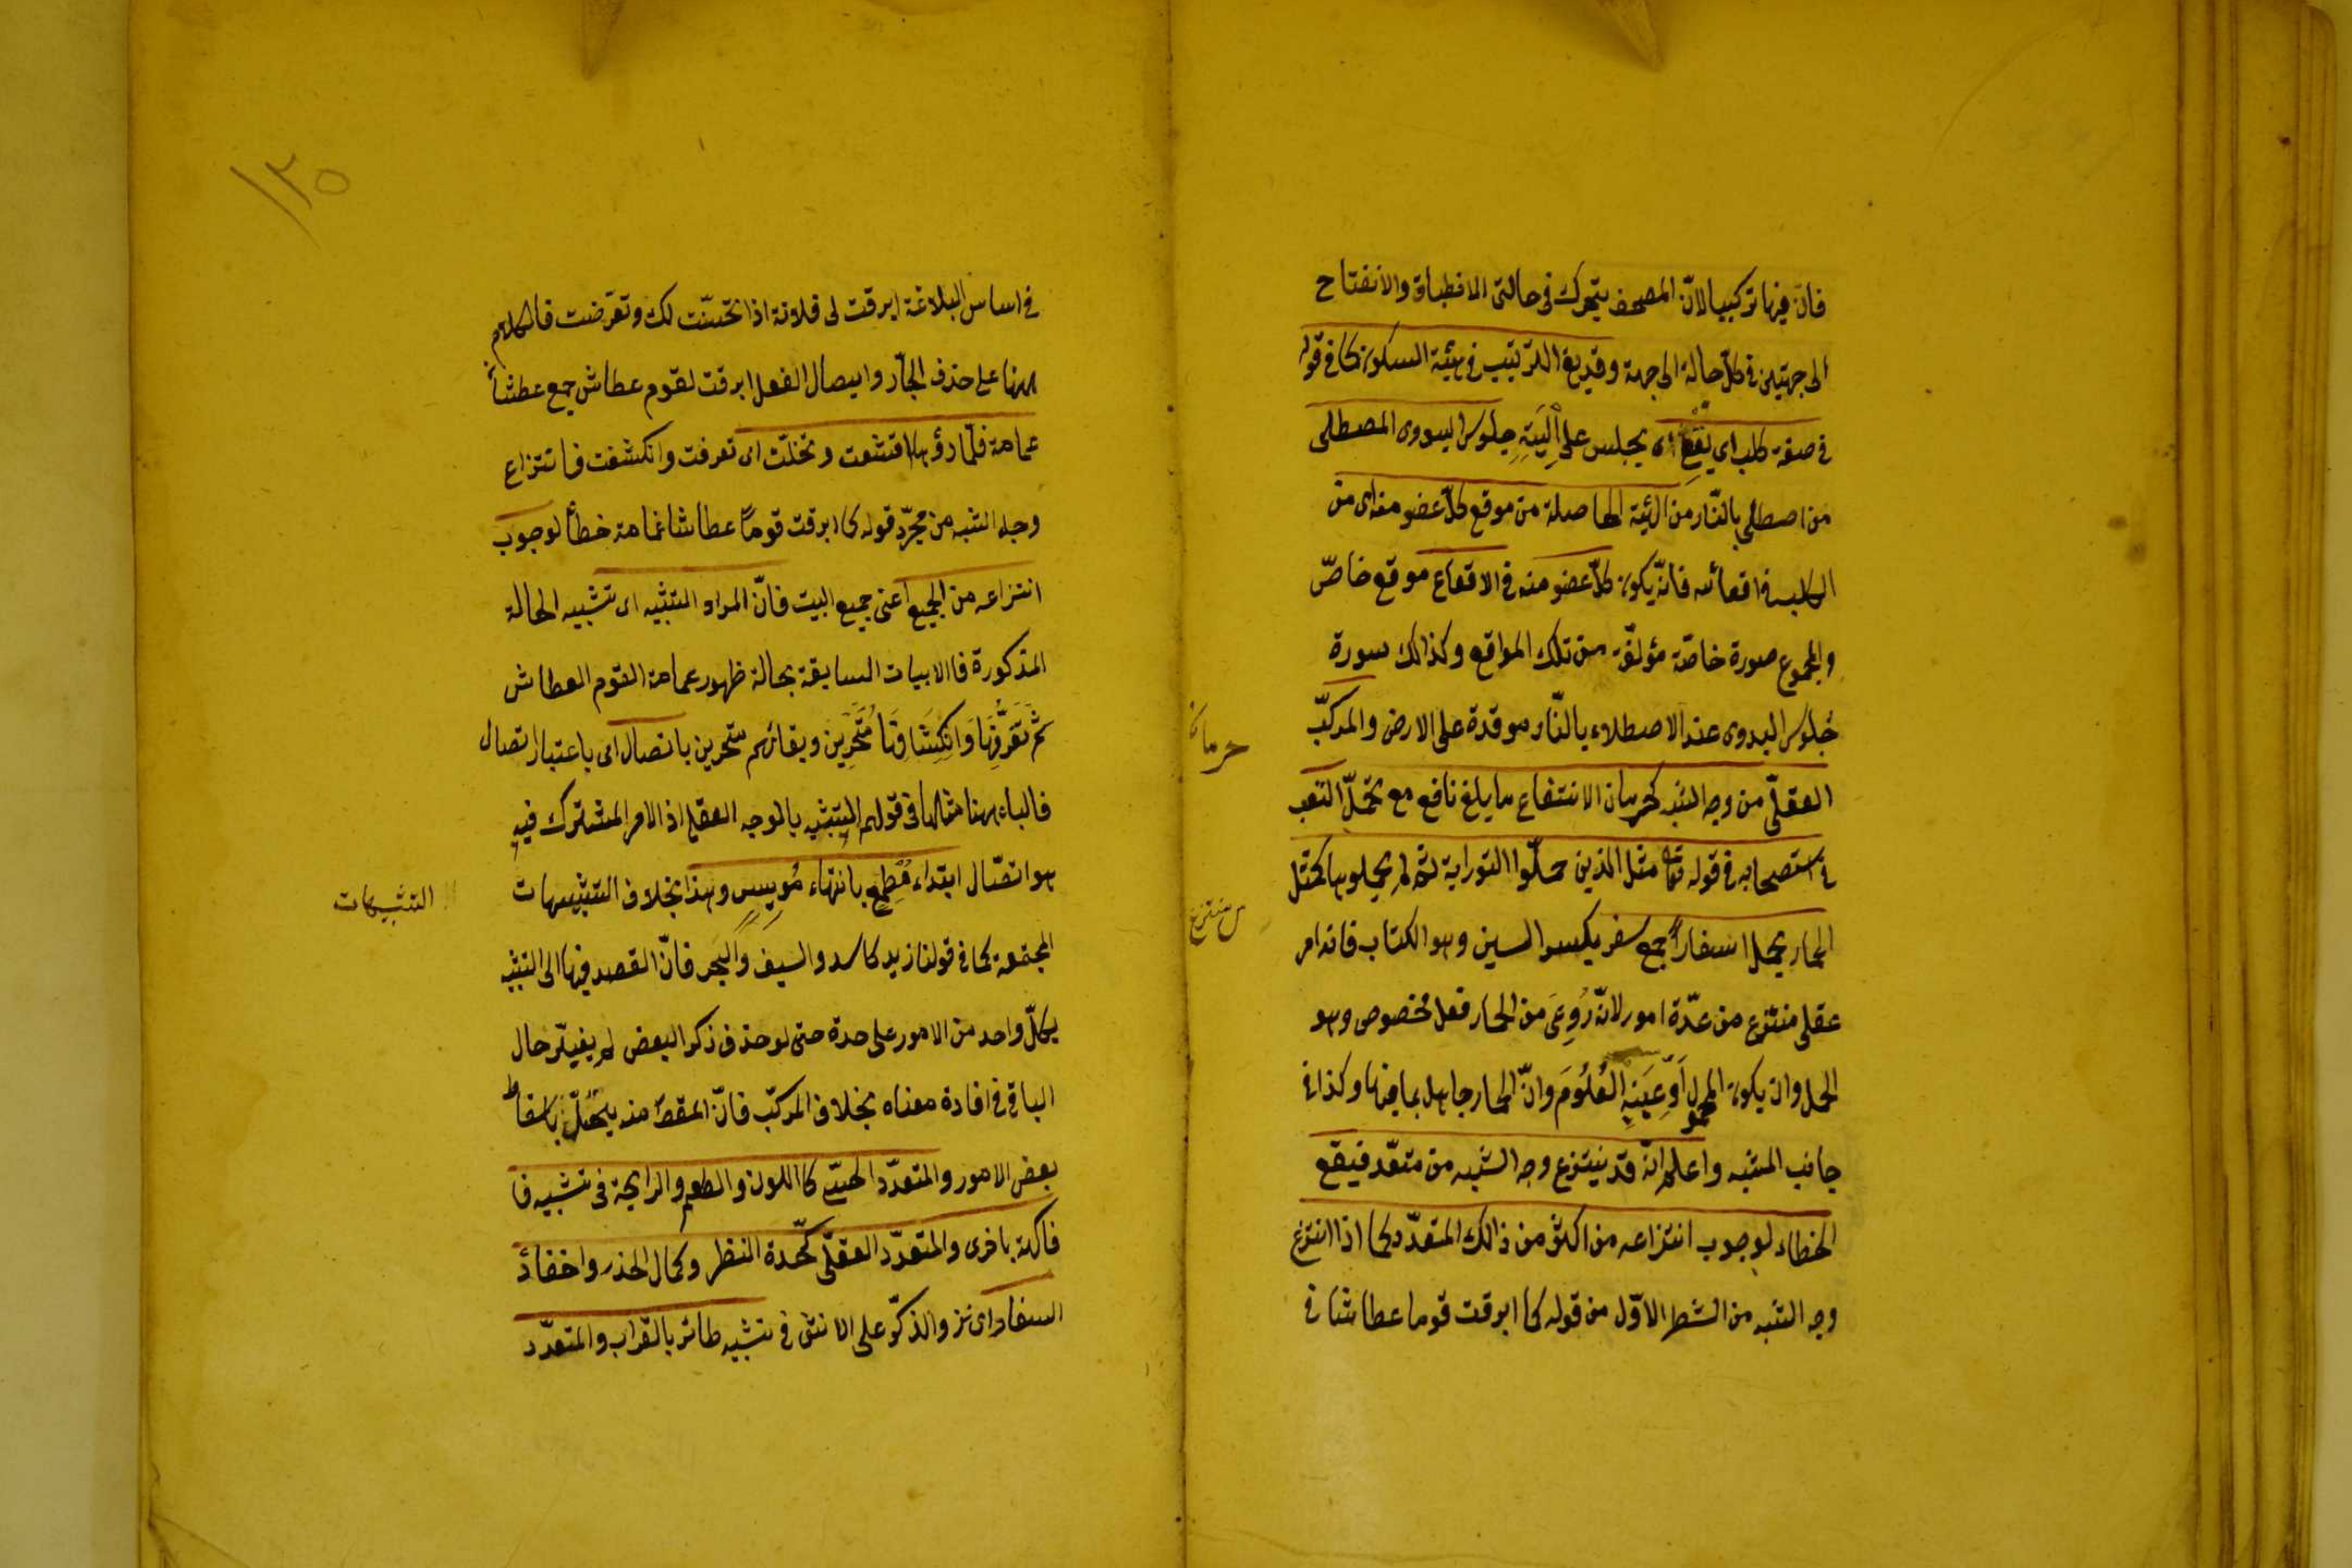 فانّ فيها تركيبا لانّ المصحف يتحرك فى حالتى الانطباق والانفتاح
الى جهتين فى كلّ حالة الى جهة وقد يقع التركيب فى هيئة السكون كما فى قوله
فى صفة كلب اى يقعى اى يجلس على اليتيه جلوس البدوى المصطلى
من اصطلى بالنّار من الهيئة الحاصلة من موقع كلّ عضو منه اى من
الكلب فى اقعائه فانّه يكون كلّ عضو منه فى الاقعاء موقع خاصّ
والمجموع صورة خاصّة مؤلفة من تلك المواقع وكذالك صورة
جُلوس البدوى عند الاصطلاء بالنّار موقدة على الارض والمركّب
العقلّى من وجه الشبه كحرمان الانتفاع بابلغ نافع مع تحمّل التعب
فى استصحابه فى قوله تعالى مثل الذين حمّلوا التوراية ثمّ لم يحملوها كمثل
الحمار يحمل اسفاراً جمع سفر بكسر السين وهو الكتاب فانه امر
عقلى منتزع من عدّة امور لانّه رُوعِىَ من الحمار فعل مخصوص وهو
الحمل وان يكون المحمول اَوْعِيَةِ العُلُومَ وانّ الحمار جاهل بما فيها وكذا فى
جانب المشبه واعلم انّه قد ينتزع وجه الشبه من متعّدد فيقع
الخطاء لوجوب انتزاعه من اكثر من ذالك المتعدّد كما اذا انتزع
وجه الشبه من الشطر الاوّل من قوله كما ابرقت قوما عطاشا فى
حرمان
منتزع
١٣٥
فى اساس البلاغة ابرقت لى فلانة اذا تحسّنت لك وتعرّضت فالكلام
ههنا على حذف الجّار وايصال الفعل ابرقت لقوم عطاش جمع عطشان
غمامة فلمّا رؤها اقشعت وتجلّت اى تفرقت وانكشفت فانتزاع
وجه الشبه من مجرّد قوله كما ابرقت قوماً عطاشا غمامة خطأ لوجوب
انتزاعه من الجميع اعنى جميع البيت فانّ المراد التشبيه اى تشبيه الحالة
المذكورة فى الابيات السابقة بحالة ظهور غمامة القوم العطاش
ثمّ تَفَرُّقِهَا وَانكِشَافِهَا مُتَحِّرِين وبقائهم متحرين باتصال اى باعتبار اتصال
فالباء ههنا مثلها فى قولهم التشبيه بالوجه العقلى اذ الامر المشترك فيه
هو اتصّال ابتداء مُطِمعٍ بانتهاء مُويِسٍ وهذا بخلاف التشبيهات
المجتمعة كما فى قولنا زيد كاسد والسيف والبَحر فانّ القصد فيها الى التشبيه
بكلّ واحد من الامور على حدة حتى لو حذف ذكر البعض لم يغيّر حال
الباقى فى افادة معناه بخلاف المركبّ فانّ المقصد منه يختلّ باسقاط
بعض الامور والمتعدّد الحسّى كااللون والطعم والرايحة فى تشبيه فا
فاكهة باخرى والمتعدّد العقلّى كحّدة النظر وكمال الحذر واخفاء
السفاد اى نزو الذكّر على الانثى فى تشبيه طائر بالغراب والمتعدّد
التشبيهات